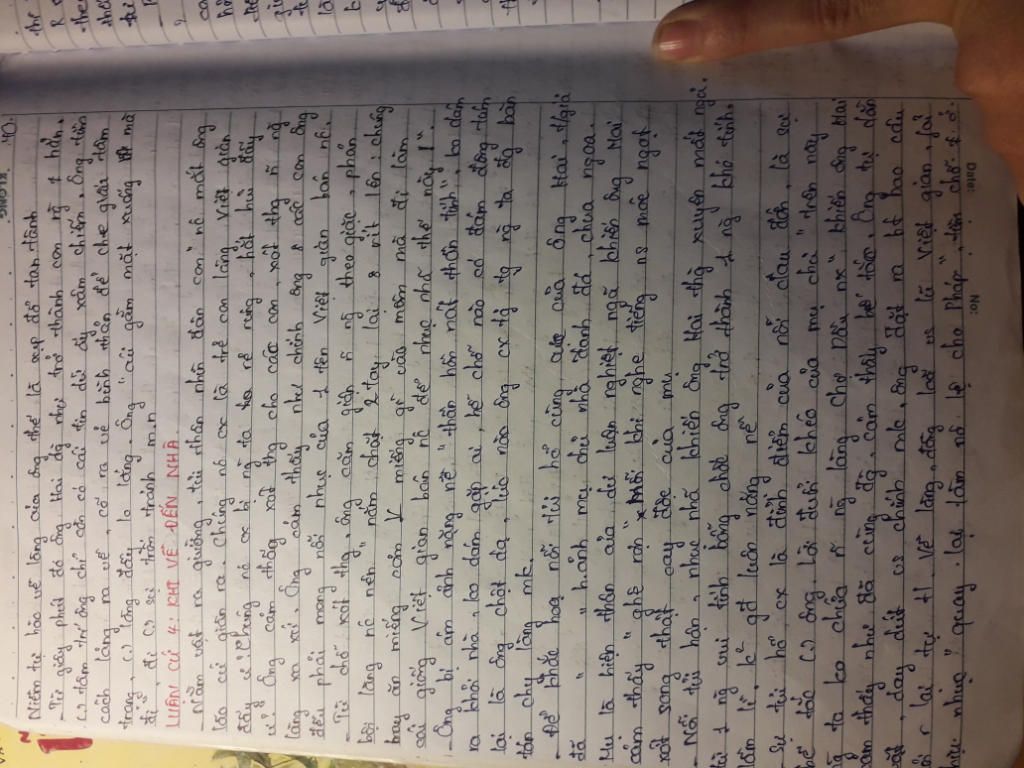 Niềm tự hào về làng của ông thế là sụp đổ tan tành
- Từ giây phút đó ông Hai đã như trở thành con ng ≠ hẳn.
(.) tâm trí ông chỉ còn có cái tin dữ ấy xâm chiếm. Ông tìm
cách lảng ra về, cố ra vẻ bình thản để che giấu tâm
trạng, (.) lòng đầy lo lắng. Ông "cúi gằm mặt xuống mà
đi", đi (.) sự trốn tránh m.n
LUẬN CỨ 4: KHI VỀ ĐẾN NHÀ
- Nằm vật ra giường, tủi thân nhìn đàn con, nc mắt ông
lão cứ giàn ra. Chúng nó cx là trẻ con làng Việt gian
đấy ư? Chúng nó cx bị ng ta rẻ rúng, hắt hủi đấy
ư? Ông cảm thấy xót thg cho các con, xót thg n~ ng
làng xa xứ. Ông cảm thấy như chính ông & các con ông
đều phải mang nỗi nhục của 1 tên Việt gian bán nc.
- Từ chỗ xót thg, ông căm giận n~ ng theo giặc, phản
bội làng nc nên "nắm chặt 2 tay lại & rít lên: chúng
bay ăn miếng cơm miếng gì vào mồm mà đi làm
cái giống Việt gian bán nc để nhục nhã thế này!".
- Ông bị ám ảnh nặng nề "thần hồn nát thần tính", ko dám
ra khỏi nhà, ko dám gặp ai, hễ chỗ nào có đám đông túm
lại là ông chột dạ, lúc nào ông cx tg ng ta đg bàn
tán chy làng mk.
- Để khắc hoạ nỗi tủi hổ cùng của ông Hai, t/giả
đã nhà đành đá, chua ngoa.
Mụ là hiện thân của dư luận nghiệt ngã khiến ông Hai
cảm thấy "ghê rợn" khi nghe tiếng ns móc ngạt
xót sang thật cay độc của mụ
- Nỗi tủi hờn, nhục nhã khiến ông Hai th' xuyên mất ngủ.
từ 1 ng vui tính bỗng chốc ông trở thành 1 ng khó tính.
lầm lì, k° gđ luôn nặng nề
- Sự tủi hổ cx là đỉnh điểm của nỗi đau đớn, là sự
bế tắc (.) ông. Lời đuổi khéo của mụ chủ "trên này
ng ta ko chứa n~ ng làng chợ Dầu nx" khiến ông Hai
cảm thấy như đã cùng đg, cảm thấy bế tắc. Ông tự dằn
vặt, day dứt vs chính mk, ông đặt ra bt bao câu
hỏi r lại tự tl. Về làng, đồng loã vs lũ Việt gian, fải
chịu nhục "quay lại làm nô lệ cho Pháp",